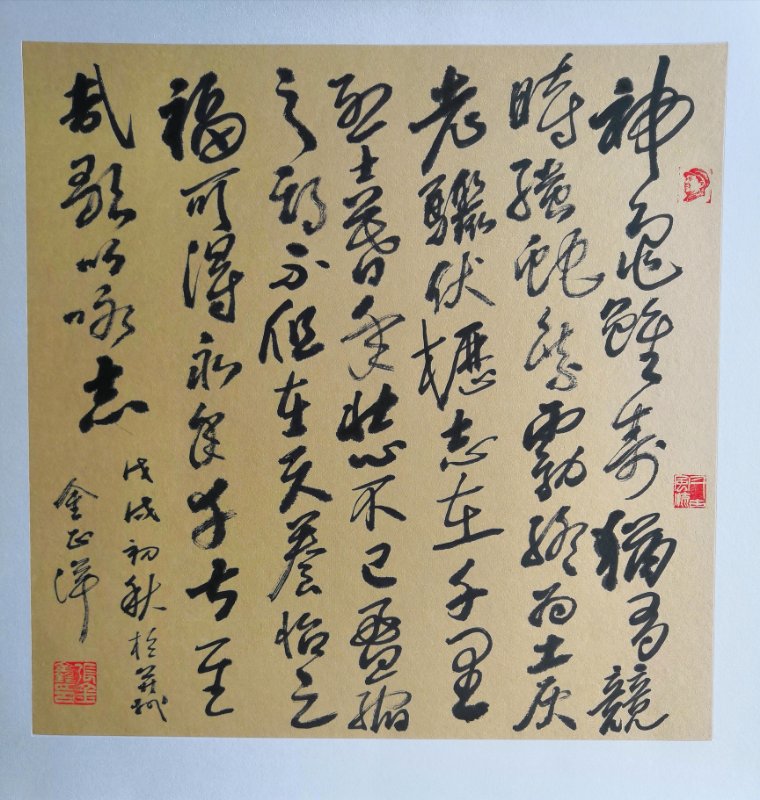 神龜雖壽猶有競
時螣蛇乘霧終為土灰
老驥伏櫪志在千里
烈士暮年壯心不已盈縮
之期不但在天養怡之
福可得永年幸甚至
哉歌以咏志
戊戌初秋於
金